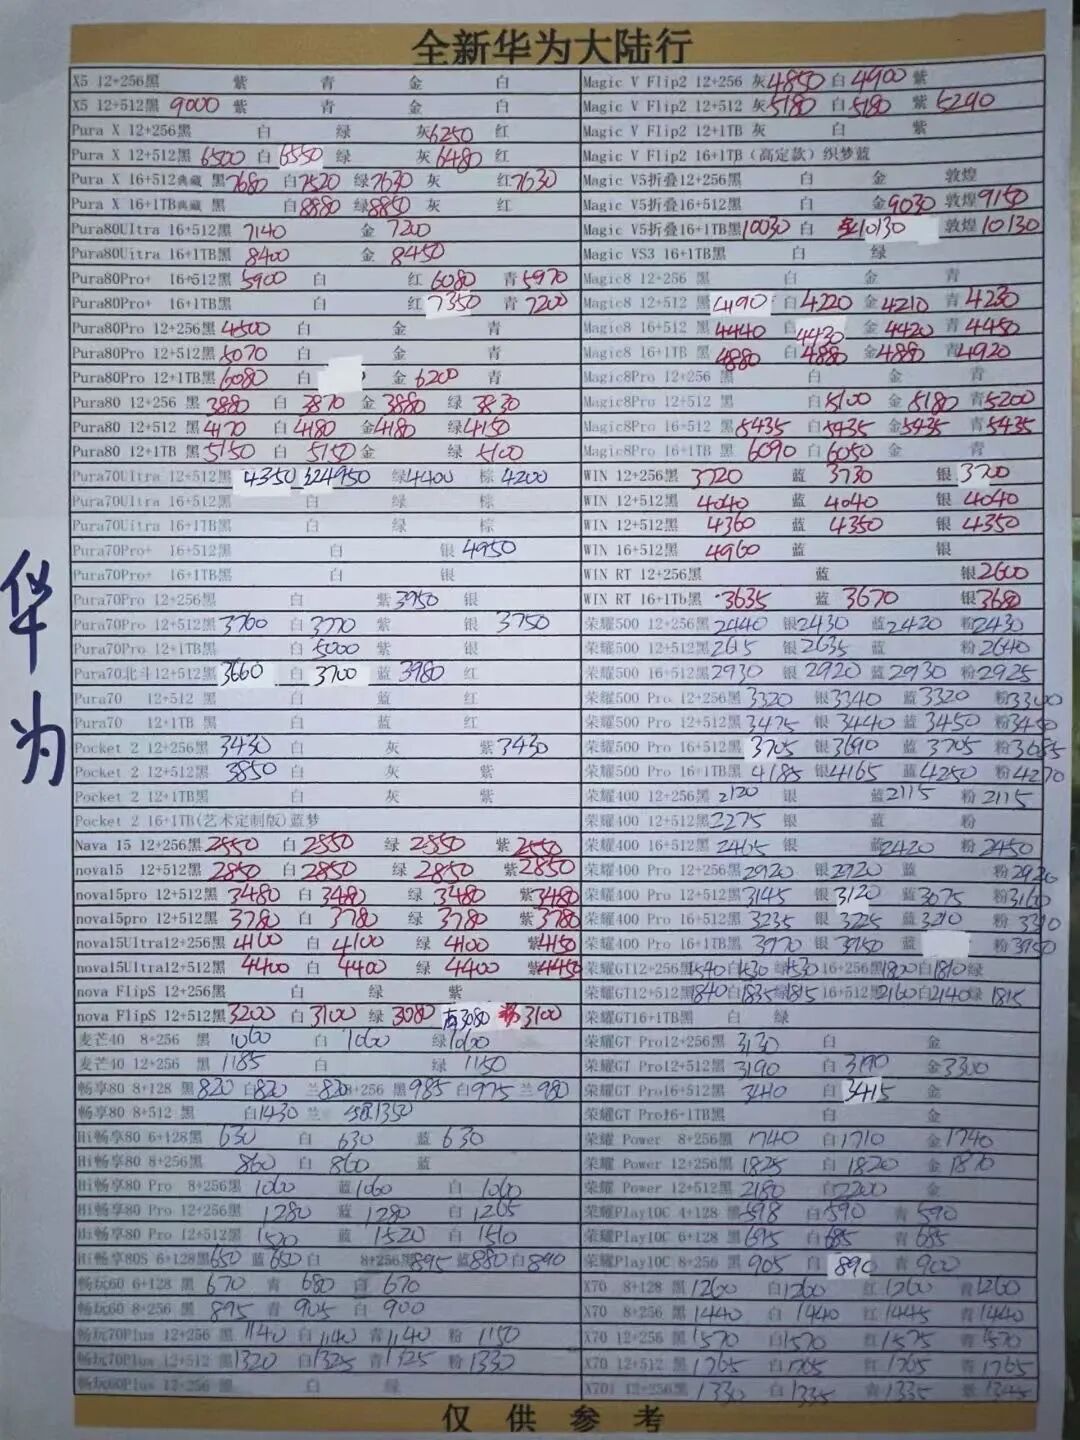 全新华为大陆行
X5 12+256黑 紫 青 金 白
X5 12+512黑 9000 紫 青 金 白
Pura X 12+256黑 白 绿 灰6250 红
Pura X 12+512黑 6500 白 6550 绿 灰 6480 红
Pura X 16+512典藏 黑7680 白7520 绿7630 灰 红7630
Pura X 16+1TB典藏 黑 白8880 绿8850 灰 红
Pura80Ultra 16+512黑 7140 金 7200
Pura80Uitra 16+1TB黑 8400 金 8450
Pura80Pro+ 16+512黑 5900 白 红 6080 青5970
Pura80Pro+ 16+1TB黑 白 红 7350 青 7200
Pura80Pro 12+256黑 4500 白 金 青
Pura80Pro 12+512黑 5070 白 金 青
Pura80Pro 12+1TB黑6080 白 金 6200 青
Pura80 12+256 黑 3880 白 3870 金 3880 绿 3830
Pura80 12+512 黑 4170 白 4180 金4180 绿4150
Pura80 12+1TB 黑 5150 白 5150 金 绿 5100
Pura70Ultra 12+512黑 4350 4950 绿4400 棕 4200
Pura70Ultra 16+512黑 白 绿 棕
Pura70Uitra 16+1TB黑 白 绿 棕
Pura70Pro+ 16+512黑 白 银 4950
Pura70Pro+ 16+1TB黑 白 银
Pura70Pro 12+256黑 白 紫3950 银
Pura70Pro 12+512黑3700 白3770 紫 银 3750
Pura70Pro 12+1TB黑 白5000 紫 银
Pura70北斗12+512黑3660 白 3700 蓝 3980 红
Pura70 12+512 黑 白 蓝 红
Pura70 12+1TB 黑 白 蓝 红
Pocket 2 12+256黑 3430 白 灰 紫3430
Pocket 2 12+512黑 3850 白 灰 紫
Pocket 2 12+1TB黑 白 灰 紫
Pocket 2 16+1TB(艺术定制版)蓝梦
Nava 15 12+256黑2550 白 2550 绿 2550 紫2550
nova15 12+512黑 2850 白2850 绿 2850 紫2850
nova15pro 12+512黑 3480 白 3480 绿 3480 紫3480
nova15pro 12+512黑 3780 白 3780 绿 3780 紫3780
nova15Ultra12+256黑4100 白 4100 绿 4100 紫4150
nova15Ultra12+512黑 4400 白 4400 绿 4400 紫4450
nova FlipS 12+256黑 白 绿 紫
nova FlipS 12+512黑3200 白 3100 绿 3080 3080 3100
麦芒40 8+256 黑 1060 白 1060 绿1060
麦芒40 12+256 黑 1185 白 绿 1150
畅享80 8+128 黑820 白820 兰820 8+256 黑985 白975 兰 980
畅享80 8+512 黑 白1430 兰 1350
Hi畅享80 6+128黑 630 白 630 蓝 630
Hi畅享80 8+256黑 860 白 860 蓝
Hi畅享80 Pro 8+256黑 1060 蓝1060 白 1060
Hi畅享80 Pro 12+256黑 1280 蓝 1280 白 1265
Hi畅享80 Pro 12+512黑 1520 蓝 1520 白 1510
Hi畅享80S 6+128黑650 蓝 650 白 8+256黑895 蓝880 白890
畅玩60 6+128 黑 670 青 680 白 670
畅玩60 8+256 黑 895 青 905 白 900
畅玩70Plus 12+256 黑 1140 白1140 青1140 粉 1150
畅玩70Plus 12+512 黑1320 白1325 青1325 粉 1330
畅玩60Plus 12+256 黑 白 绿
Magic V Flip2 12+256 灰4850 白 4900 紫
Magic V Flip2 12+512 灰5180 白5180 紫 5290
Magic V Flip2 12+1TB 灰 白 紫
Magic V Flip2 16+1TB（高定款）织梦蓝
Magic V5折叠12+256黑 白 金 敦煌
Magic V5折叠16+512黑 白 金9030 敦煌9150
Magic V5折叠16+1TB黑10030 白 10130 敦煌10130
Magic VS3 16+1TB黑 白 绿
Magic8 12+256 黑 白 金 青
Magic8 12+512 黑4190 白4220 金4210 青 4230
Magic8 16+512 黑 4440 白4430 金 4420 青4450
Magic8 16+1TB 黑 4880 白 4880 金4880 青4920
Magic8Pro 12+256 黑 白 金 青
Magic8Pro 12+512 黑 白5100 金 5180 青5200
Magic8Pro 16+512 黑5435 白5435 金5435 青5435
Magic8Pro 16+1TB 黑 6090 白 6050 金 青
WIN 12+256黑 3720 蓝 3730 银 3700
WIN 12+512黑 4040 蓝 4040 银 4040
WIN 12+512黑 4360 蓝 4350 银 4350
WIN 16+512黑 4960 蓝 银
WIN RT 12+256黑 蓝 银2600
WIN RT 16+1Tb黑 3635 蓝 3670 银3680
荣耀500 12+256黑2440 银2430 蓝2420 粉2430
荣耀500 12+512黑2615 银2635 蓝 粉 2640
荣耀500 16+512黑2930 银 2920 蓝2930 粉2925
荣耀500 Pro 12+256黑3320 银3340 蓝3320 粉3340
荣耀500 Pro 12+512黑3475 银 3440 蓝 3450 粉3450
荣耀500 Pro 16+512黑 3705 银3690 蓝 3705 粉3685
荣耀500 Pro 16+1TB黑 4185 银4165 蓝4250 粉 4270
荣耀400 12+256黑 2120 银 蓝2115 粉 2115
荣耀400 12+512黑2275 银 蓝 粉
荣耀400 16+512黑 2465 银 蓝2420 粉 2450
荣耀400 Pro 12+256黑2920 银2920 蓝 粉2920
荣耀400 Pro 12+512黑3145 银 3120 蓝3075 粉3160
荣耀400 Pro 16+512黑 3235 银 3225 蓝3210 粉 3310
荣耀400 Pro 16+1TB黑 3970 银 3950 蓝 粉 3950
荣耀GT12+256黑1540 白1530 绿1530 16+256黑1800白1810绿
荣耀GT12+512黑1840白1835绿1815 16+512黑2160白2140绿 1815
荣耀GT16+1TB黑 白 绿
荣耀GT Pro12+256黑 3130 白 金
荣耀GT Pro12+512黑 3190 白 3190 金3300
荣耀GT Pro16+512黑 3410 白 3415 金
荣耀GT Pro16+1TB黑 白 金
荣耀 Power 8+256黑 1740 白1710 金1740
荣耀 Power 12+256黑 1825 白 1820 金 1870
荣耀 Power 12+512黑 2180 白2200 金
荣耀Play10C 4+128 黑598 白590 青 590
荣耀Play10C 6+128 黑 695 白685 青 685
荣耀Play10C 8+256 黑 905 白 890 青 900
X70 8+128 黑1260 白1260 红 1260 青1260
X70 8+256 黑1440 白 1440 红1445 青1440
X70 12+256 黑1570 白1570 红 1575 青1570
X70 12+512 黑1765 白1765 红 1765 青1765
X70i 12+256黑 1330 白 1335 青1335 1345
仅供参考
华为